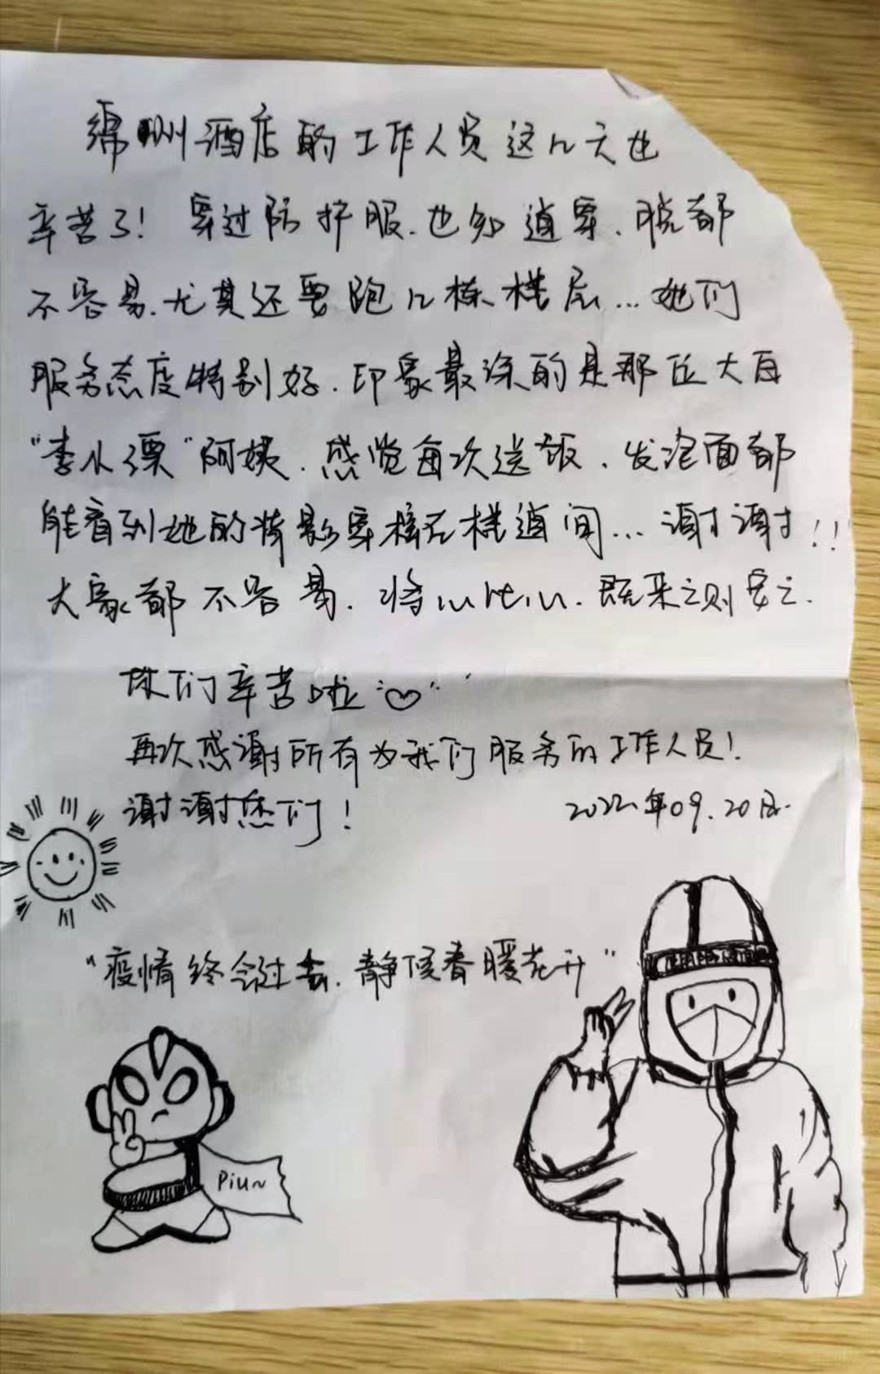 绵州酒店的工作人员这几天也
辛苦了！穿过防护服.也知道穿、脱都
不容易.尤其还要跑几栋楼层...她们
服务态度特别好.印象最深的是那位大白
“李小漂”阿姨.感觉每次送饭、发泡面都
能看到她的背影穿梭在楼道间...谢谢!!
大家都不容易.将心比心.既来之则安之.
你们辛苦啦♡
再次感谢所有为我们服务的工作人员!
谢谢您们!
2022年09.20日.
“疫情终会过去.静候春暖花开”
Piu~